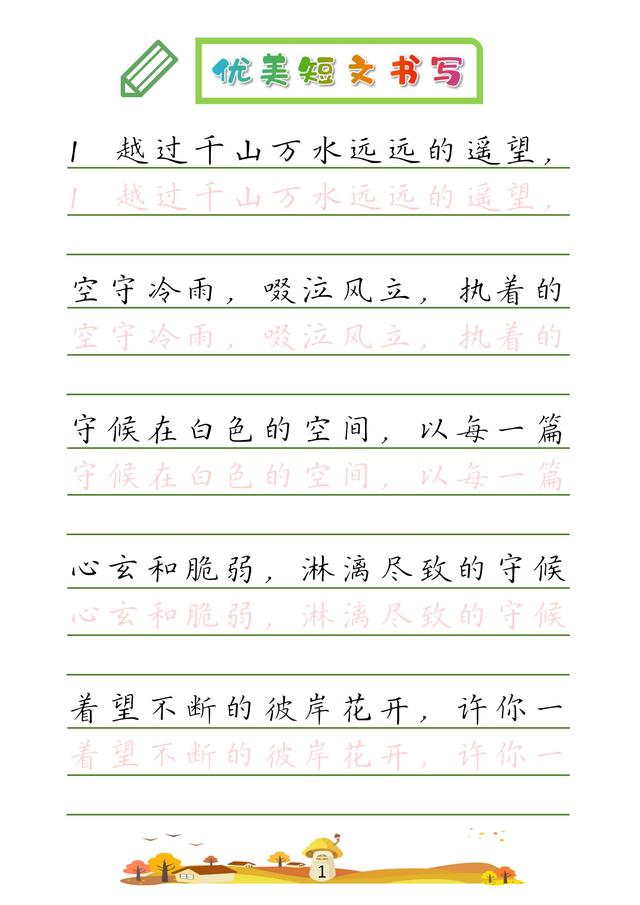 优美短文书写
1 越过千山万水远远的遥望，
1 越过千山万水远远的遥望，
空守冷雨，啜泣风立，执着的
空守冷雨，啜泣风立，执着的
守候在白色的空间，以每一篇
守候在白色的空间，以每一篇
心玄和脆弱，淋漓尽致的守候
心玄和脆弱，淋漓尽致的守候
着望不断的彼岸花开，许你一
着望不断的彼岸花开，许你一
1